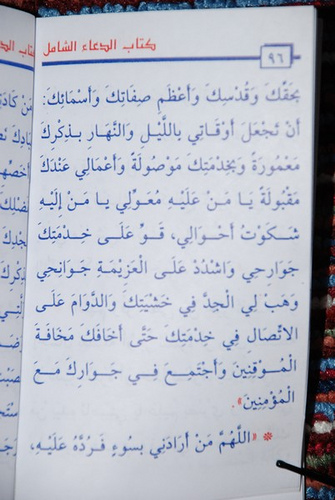 كتاب الدعاء الشامل
٩٦
بِحَقِّكَ وَقُدْسِكَ وَأَعْظَمِ صِفَاتِكَ وَأَسْمَائِكَ:
أَنْ تَجْعَلَ أَوْقَاتِي بِاللَّيْلِ وَالنَّهَارِ بِذِكْرِكَ
مَعْمُورَةً وَبِخِدْمَتِكَ مَوْصُولَةً وَأَعْمَالِي عِنْدَكَ
مَقْبُولَةً يَا مَنْ عَلَيْهِ مُعَوَّلِي يَا مَنْ إِلَيْهِ
شَكَوْتُ أَحْوَالِي، قَوِّ عَلَى خِدْمَتِكَ
جَوَارِحِي وَاشْدُدْ عَلَى الْعَزِيمَةِ جَوَانِحِي
وَهَبْ لِي الْجِدَّ فِي خَشْيَتِكَ وَالدَّوَامَ عَلَى
الاتْصَالِ فِي خِدْمَتِكَ حَتَّى أَخَافَكَ مَخَافَةَ
الْمُوقِنِينَ وَأَجْتَمِعَ فِي جَوَارِكَ مَعَ
الْمُؤْمِنِينَ».
* «اللَّهُمَّ مَنْ أَرَادَنِي بِسُوءٍ فَرُدَّهُ عَلَيْهِ،